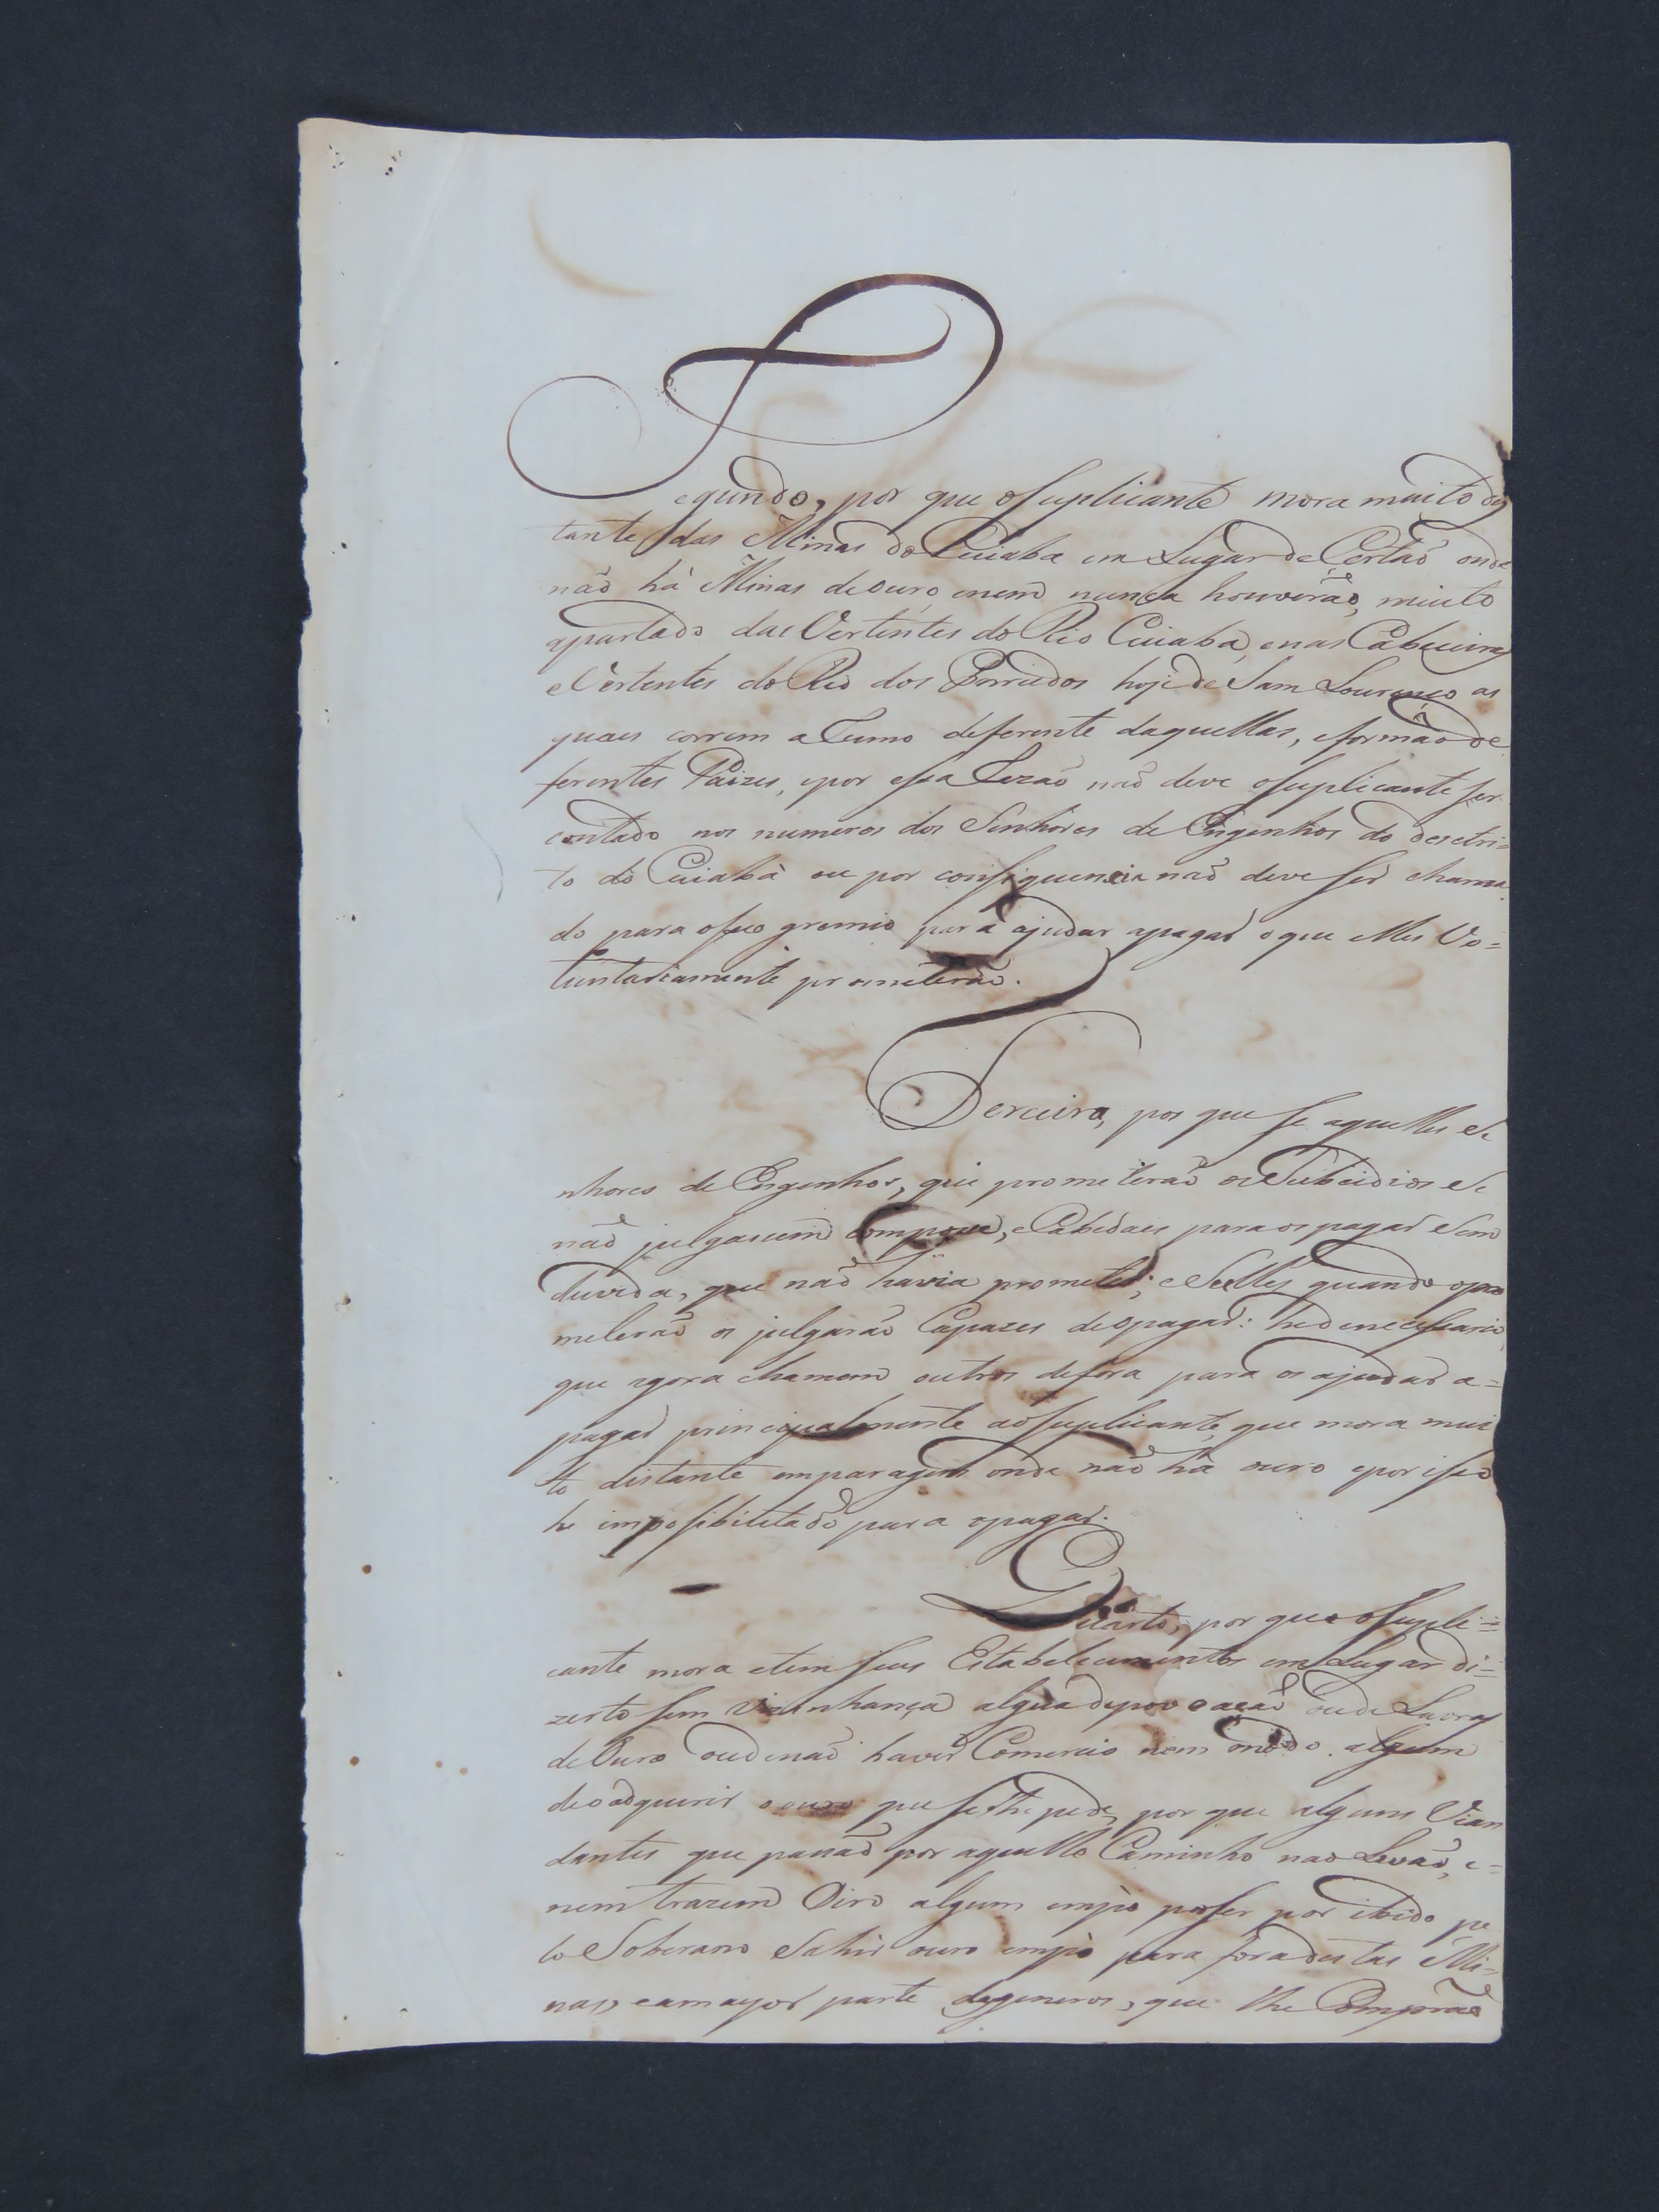 Segundo, por que o suplicante mora muito dis
tante das Minas do Cuiaba em Lugar de Certaõ onde
naõ há Minas de ouro, e nem nunca houveraõ, muito
apartado das Vertentes do Rio Cuiaba, e nas Cabeceiras
e Vertentes do Rio dos Porrudos hoje de Sam Lourenço as
quaes correm a Rumo deferente daquellas, e formaõ de
ferentes Paizes, e por essa Rezaõ naõ deve o suplicante ser
contado nos numeros dos Senhores de Engenhos do destri=
to do Cuiabà ou por consiguencia naõ deve ser chama
do para o seo gremio para ajudar apagar o que elles Vo=
luntariamente prometeraõ.
Terceiro, por que se aquelles Se
nhores de Engenhos, que prometeraõ os Subcidios Se
naõ julgacem com posses, e Cabedaes para os pagar Sem
duvida, que naõ havia prometer; e Se elles quando o pro
meteraõ os julgaraõ Capazes de o pagar: hé denecessario
que agora chamem outros defora para os ajudar a=
pagar principalmente ao suplicante, que mora mui
to distante em paragem onde naõ hà ouro e por isso
he imposibilitado para o pagar.
Quarto, por que o supli=
cante mora e tem seus Estabelecimentos em Lugar di=
zerto sem vizinhança algua de povoaçaõ ou de Lavras
de Ouro ou de naõ haver Comercio nem modo algum
de o adquirir o ouro que se lhe pede, por que alguns Vian
dantes que passaõ por aquelle Caminho nao Levaõ, e=
nem trazem Oiro algum em pò por ser por ibido pe
lo Soberano Sahir ouro em pò para fora destas Mi=
nas, e a mayor parte de generos, que lhe Compraõ